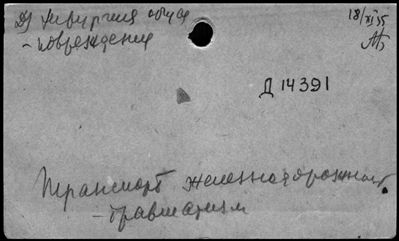 Д) Хирургия общая
- повреждения
18/XI 55
Д 14391
Транспорт железнодорожный
- травматизм